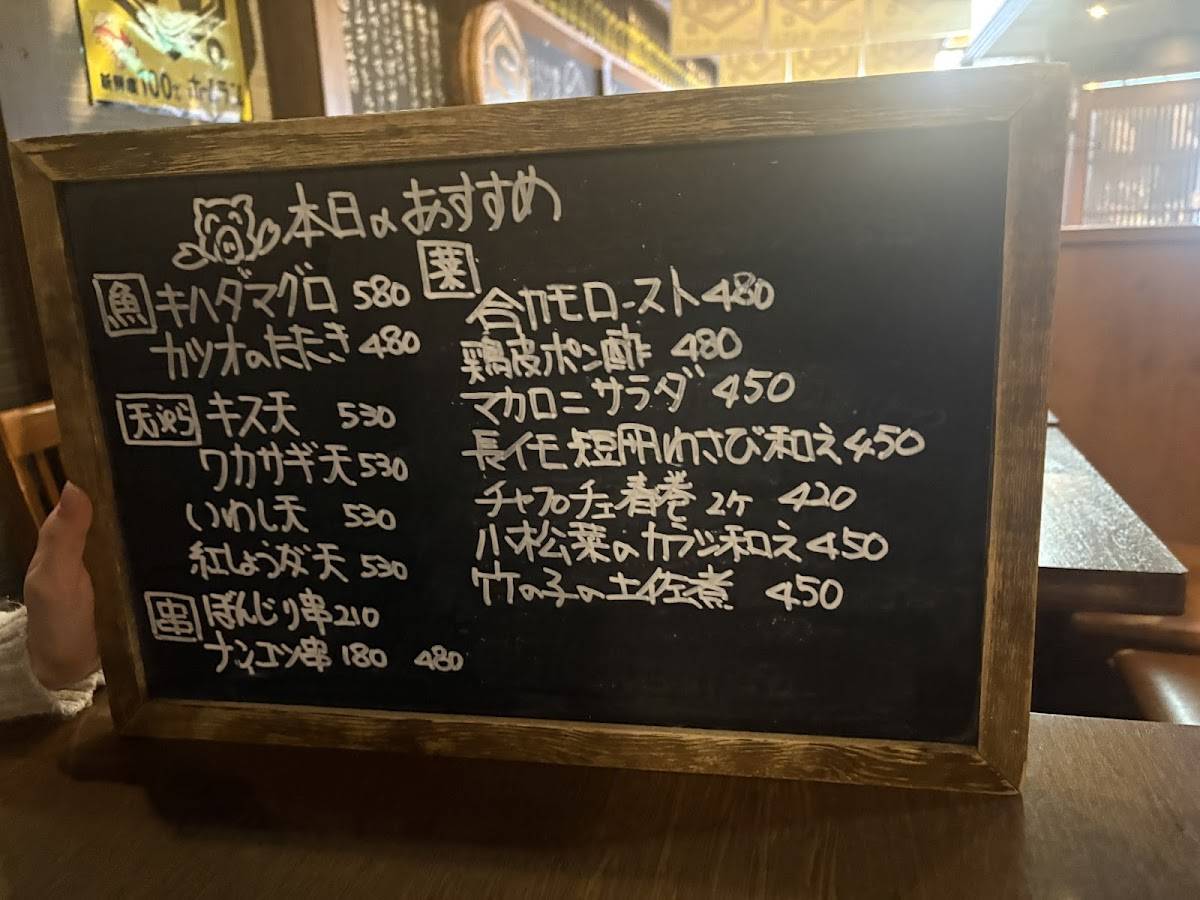 本日のおすすめ
魚 キハダマグロ 580
カツオのたたき 480
天ぷら キス天 530
ワカサギ天 530
いわし天 530
紅しょうが天 530
串 ぼんじり串 210
ナンコツ串 180 480
菜
合カモロースト 480
鶏皮ポン酢 480
マカロニサラダ 450
長イモ短冊わさび和え 450
チャプチェ春巻 2ケ 420
小松菜のカラシ和え 450
竹の子の土佐煮 450